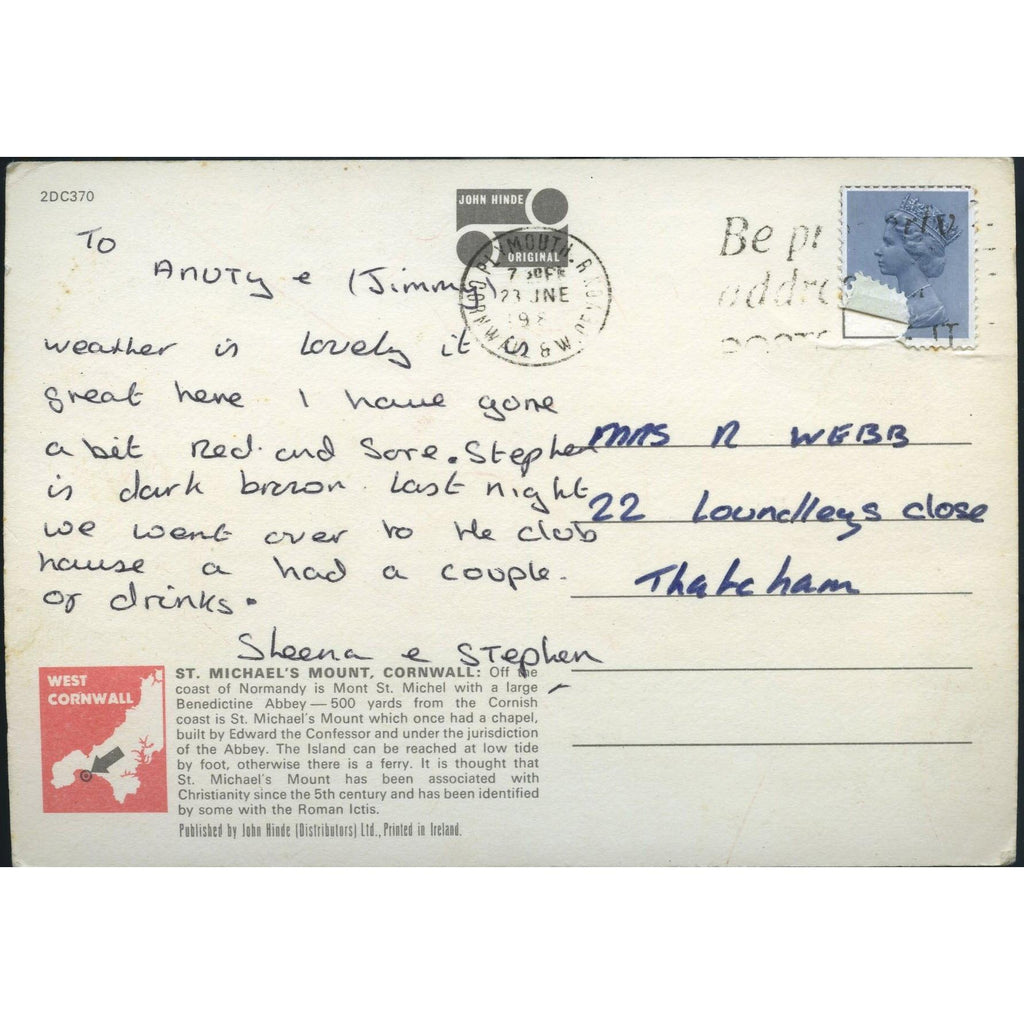 2DC370
JOHN HINDE
ORIGINAL
PLYMOUTH
CORNWALL & W. DEVON
23 JNE
198
Be pr erly
addre
To
Anuty e (Jimmy)
weather is lovely it
great here I have gone
a bit Red and Sore. Stephen
is dark brown. Last night
we went over to the club
hause a had a couple.
of drinks.
Sheena e Stephen
MRS R WEBB
22 Loundleys close
Thatcham
WEST
CORNWALL
ST. MICHAEL'S MOUNT, CORNWALL: Off the
coast of Normandy is Mont St. Michel with a large
Benedictine Abbey — 500 yards from the Cornish
coast is St. Michael's Mount which once had a chapel,
built by Edward the Confessor and under the jurisdiction
of the Abbey. The Island can be reached at low tide
by foot, otherwise there is a ferry. It is thought that
St. Michael's Mount has been associated with
Christianity since the 5th century and has been identified
by some with the Roman Ictis.
Published by John Hinde (Distributors) Ltd., Printed in Ireland.